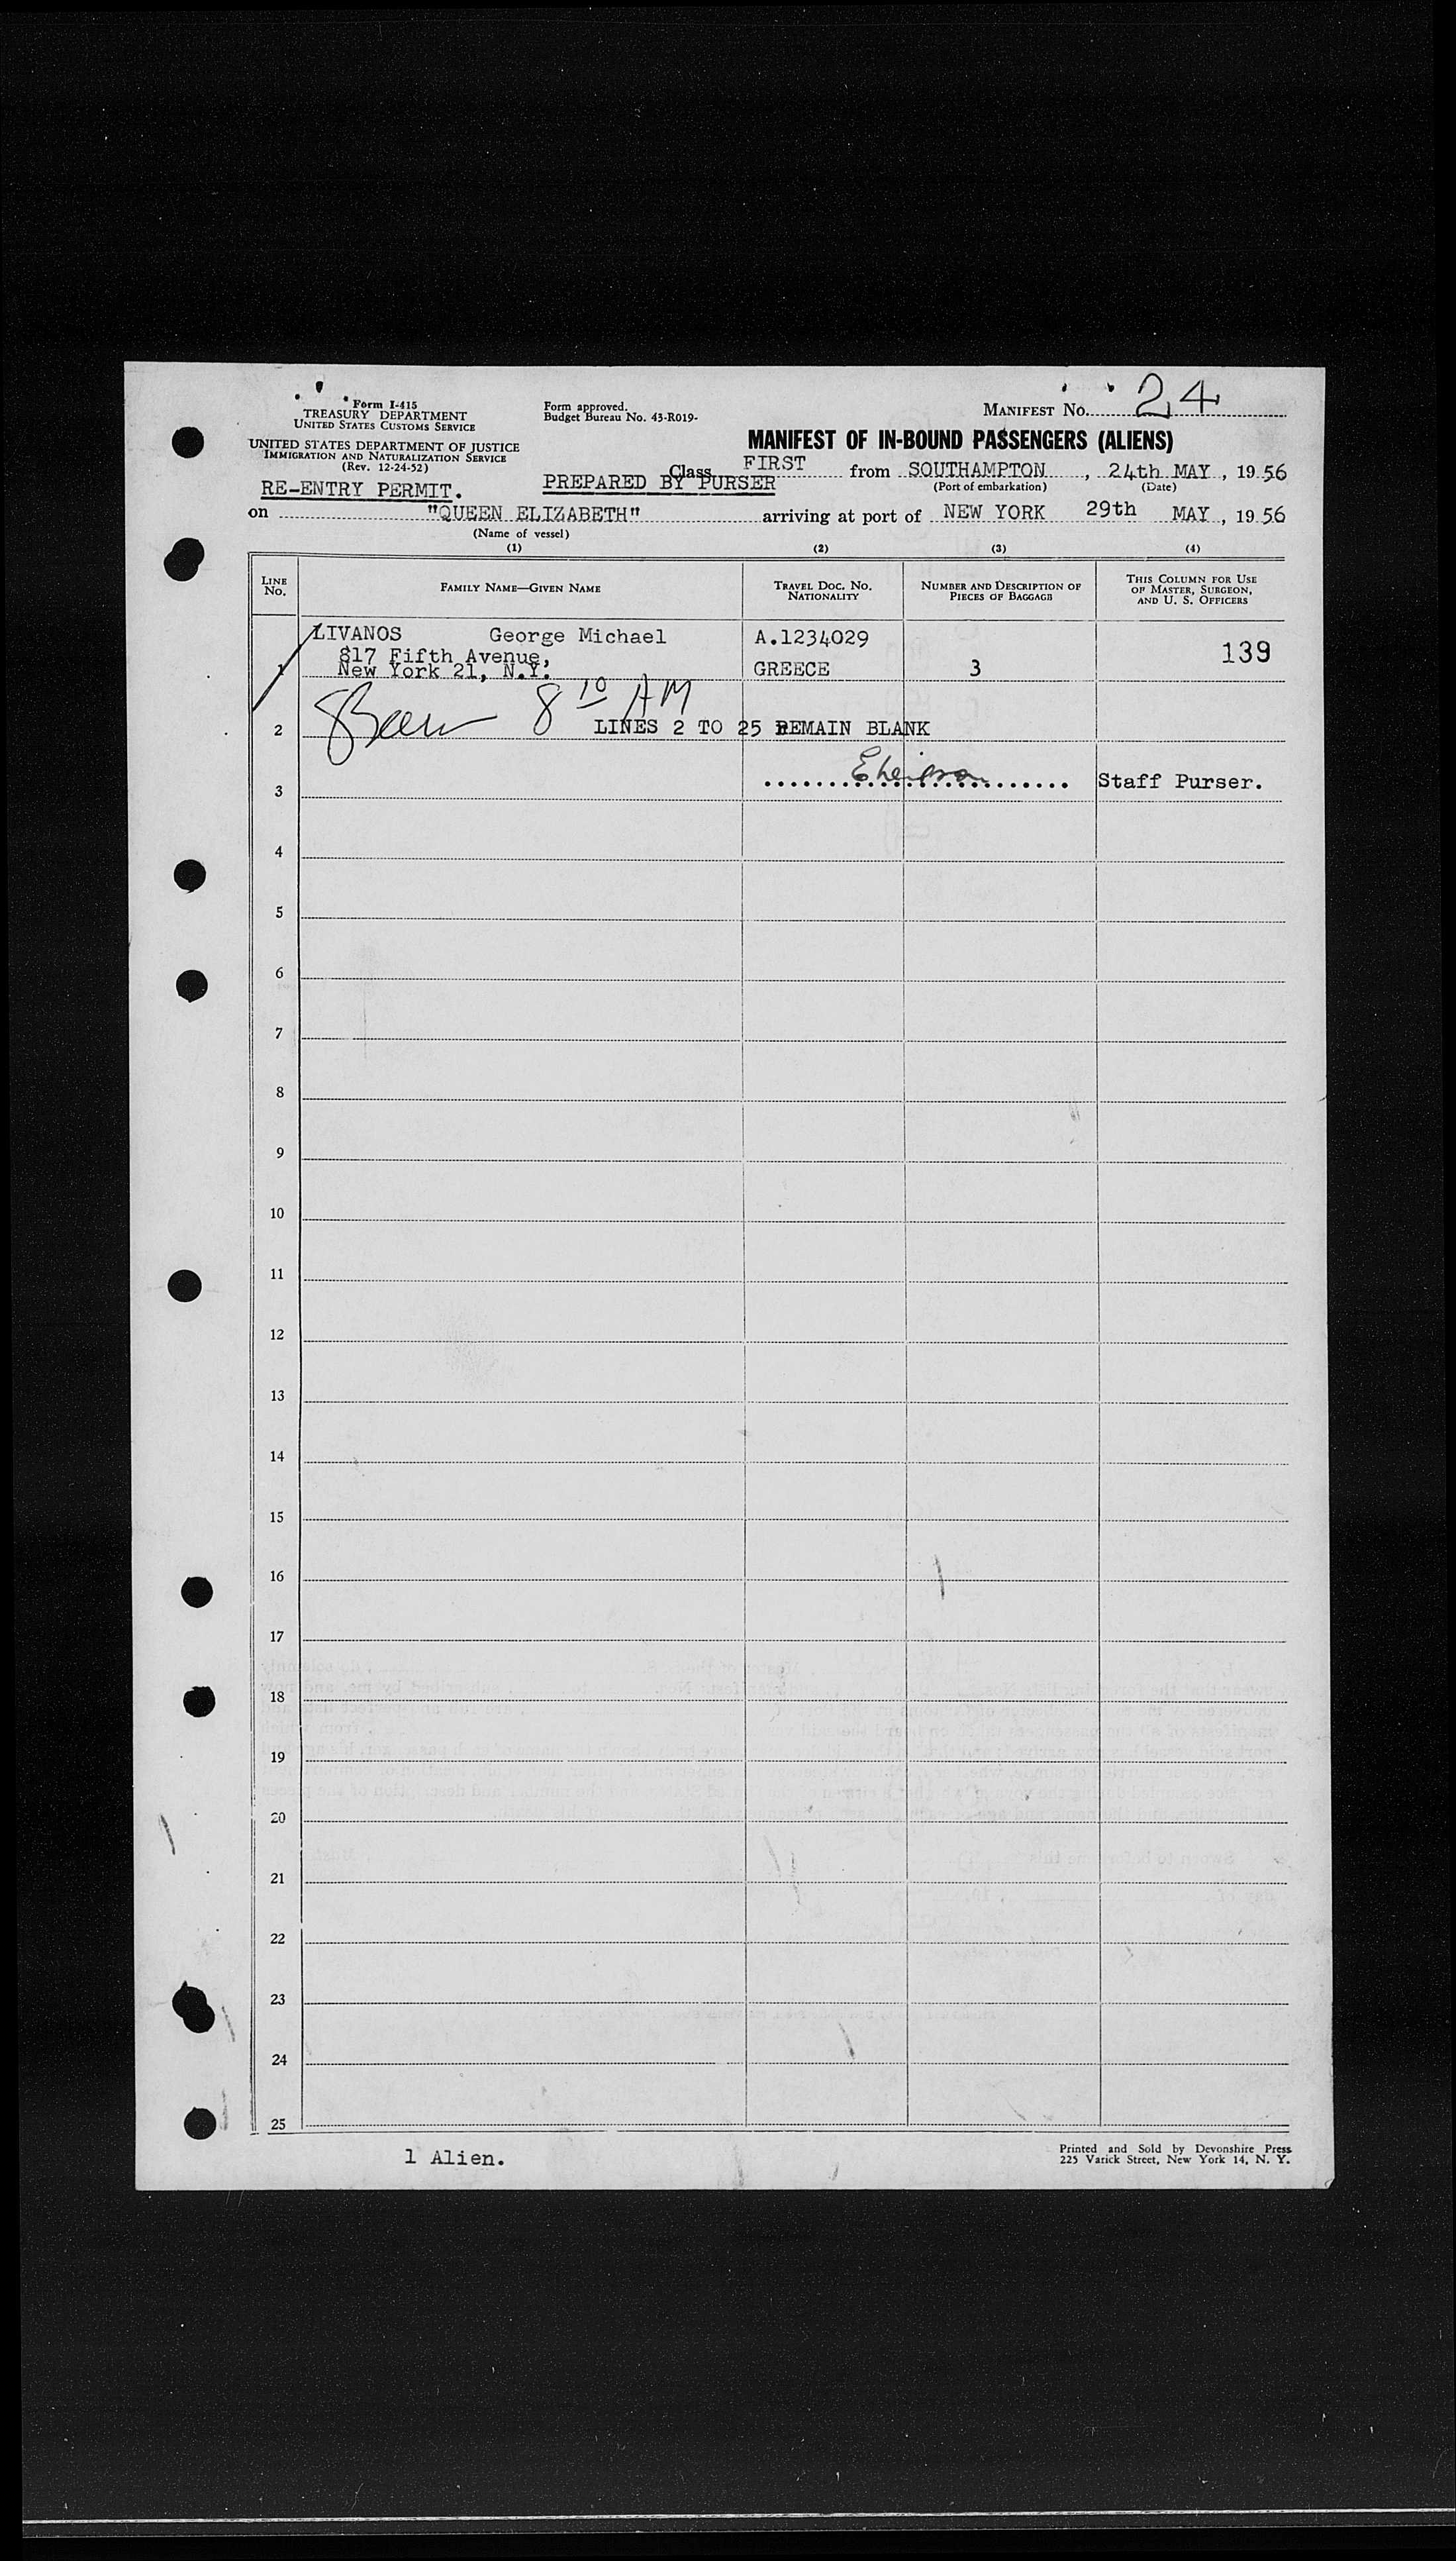 Form I-415
TREASURY DEPARTMENT
UNITED STATES CUSTOMS SERVICE
UNITED STATES DEPARTMENT OF JUSTICE
IMMIGRATION AND NATURALIZATION SERVICE
(Rev. 12-24-52)
Form approved.
Budget Bureau No. 43-R019-
MANIFEST NO. 24
MANIFEST OF IN-BOUND PASSENGERS (ALIENS)
RE-ENTRY PERMIT.
PREPARED BY PURSER
Class FIRST from SOUTHAMPTON, 24th MAY, 1956
(Port of embarkation) (Date)
on "QUEEN ELIZABETH" arriving at port of NEW YORK 29th MAY, 1956
(Name of vessel)
(1) (2) (3) (4)
LINE NO.
FAMILY NAME—GIVEN NAME
TRAVEL DOC. NO. NATIONALITY
NUMBER AND DESCRIPTION OF PIECES OF BAGGAGE
THIS COLUMN FOR USE OF MASTER, SURGEON, AND U. S. OFFICERS
LIVANOS George Michael A.1234029 139
817 Fifth Avenue,
1 New York 21, N.Y. GREECE 3
8 10 AM
2 LINES 2 TO 25 REMAIN BLANK
3 Staff Purser.
4
5
6
7
8
9
10
11
12
13
14
15
16
17
18
19
20
21
22
23
24
25
1 Alien.
Printed and Sold by Devonshire Press
225 Varick Street, New York 14, N. Y.